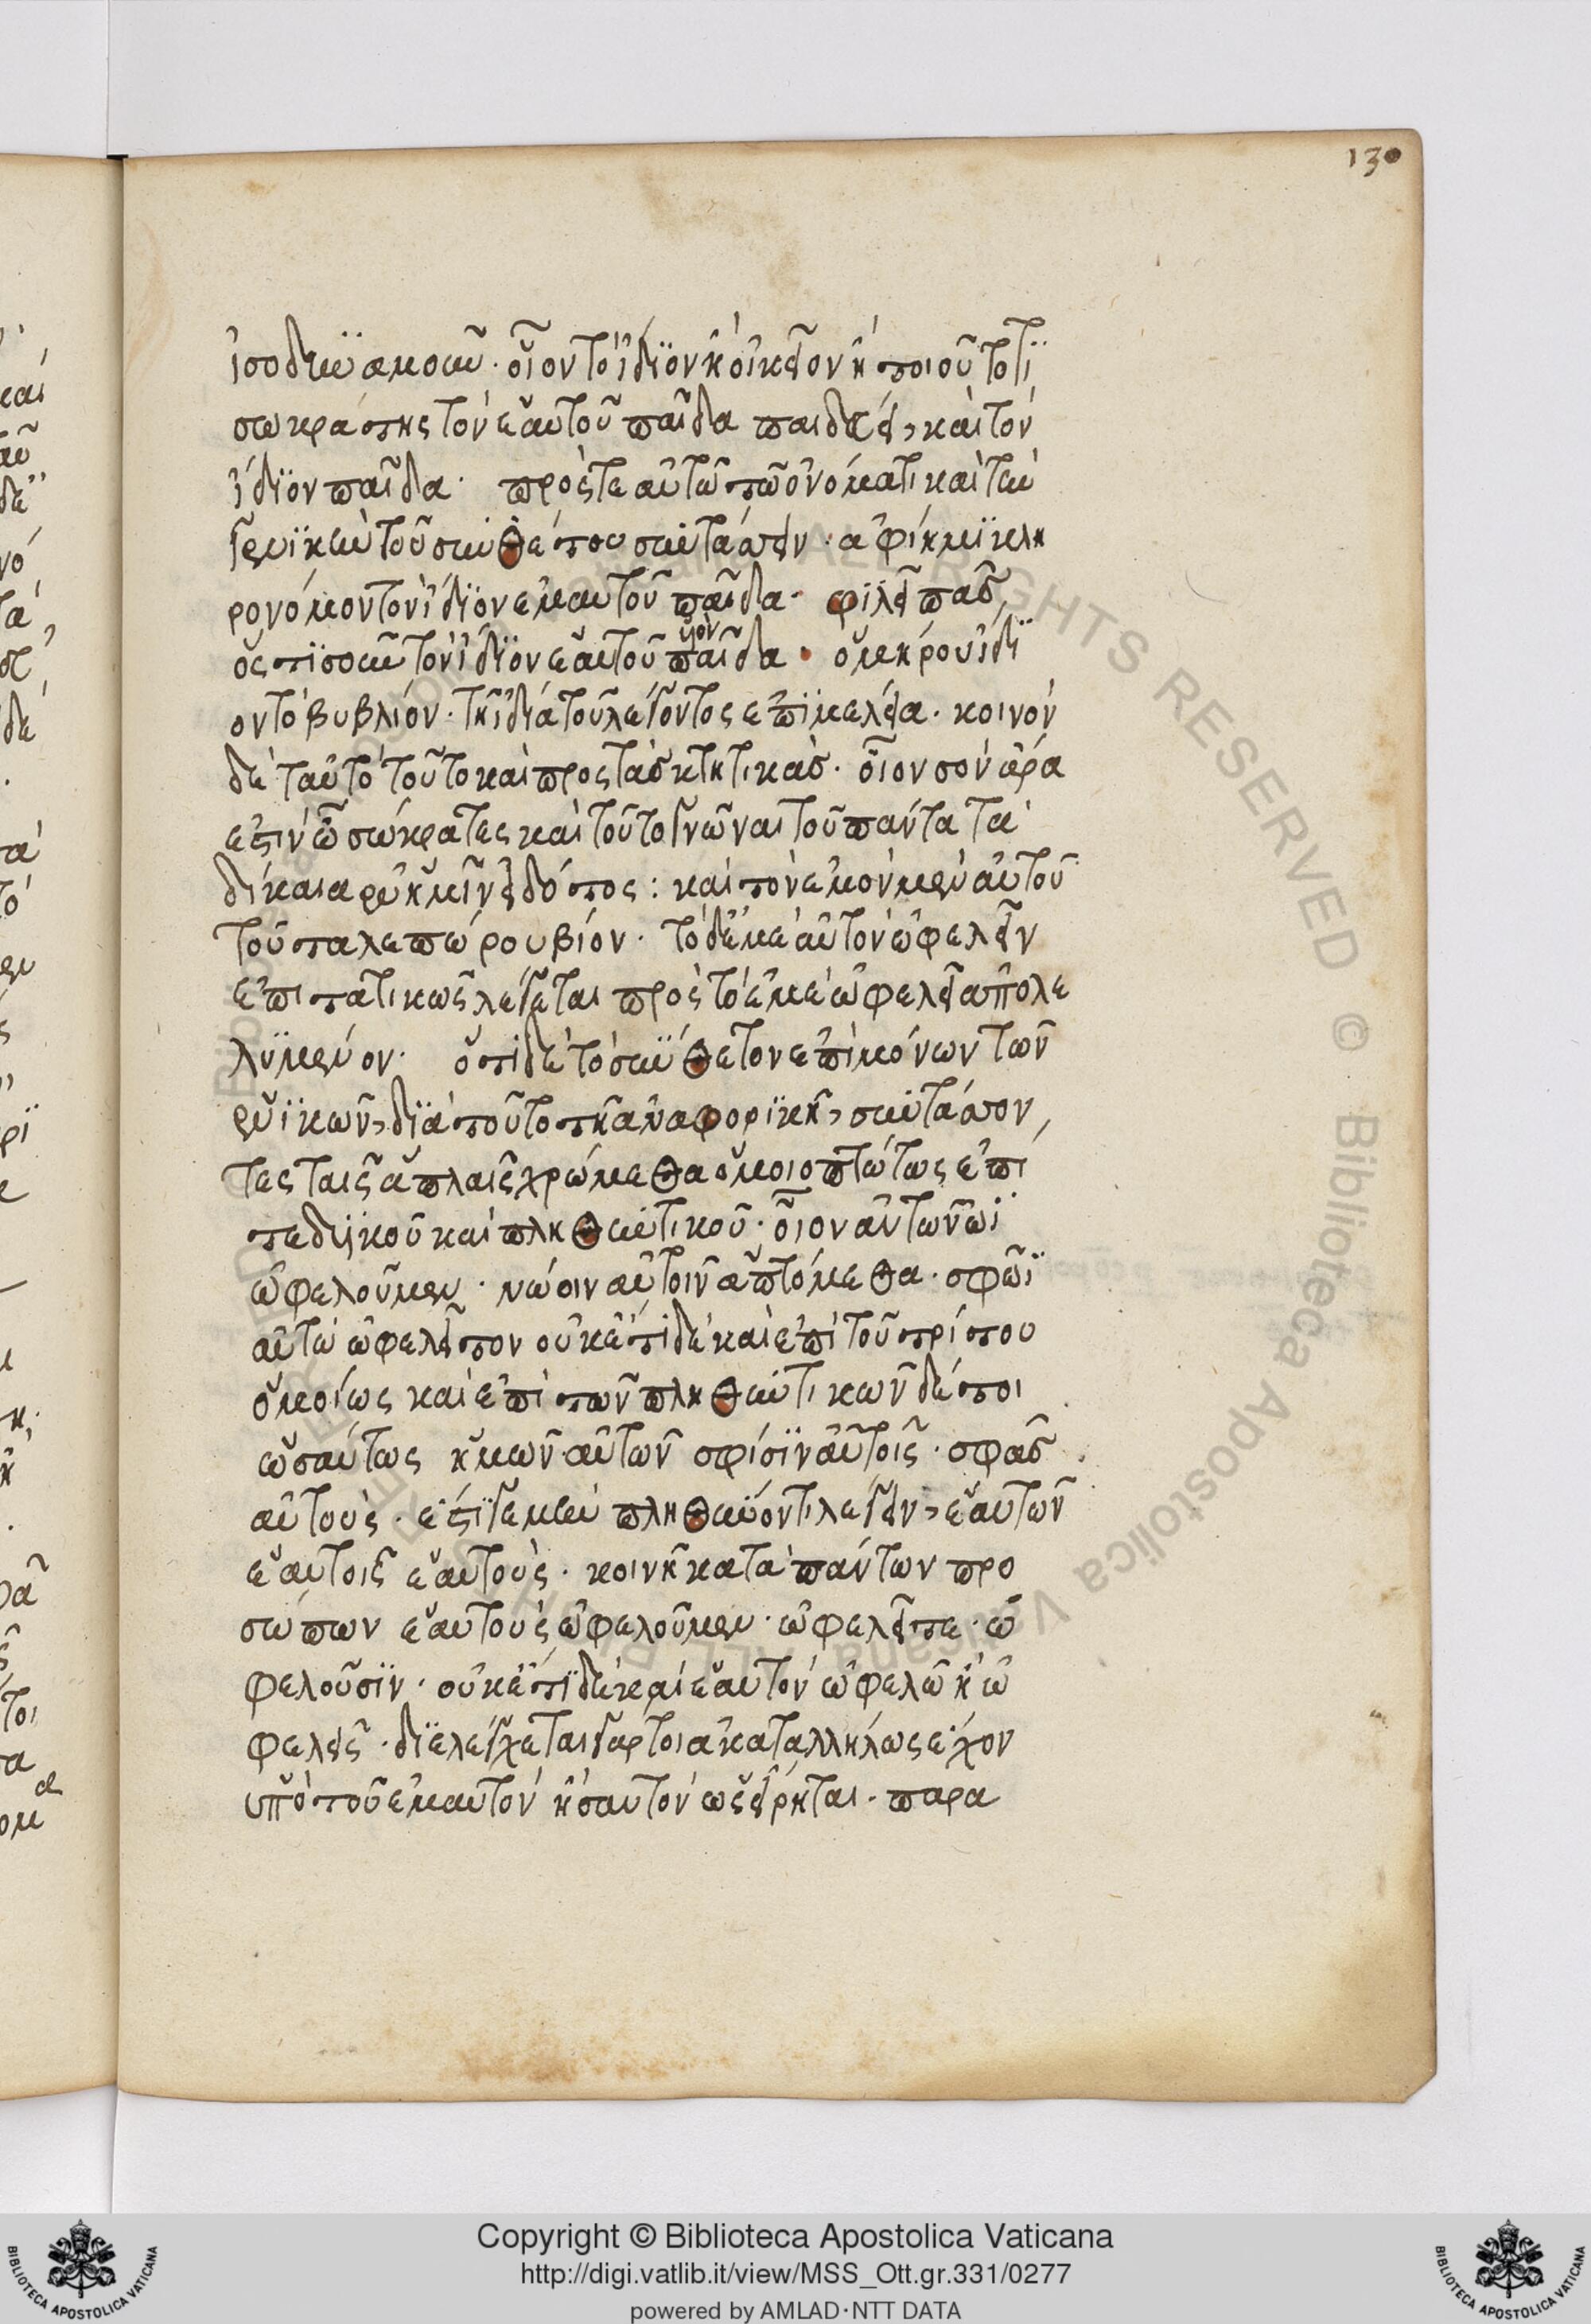 130
ἰσοδυναμοῦν· οἷον τὸ ἴδιον ἢ οἰκεῖον ἢ ποιοῦτό τι
σωκράτης τὸν ἑαυτοῦ παῖδα παιδεύει, καὶ τὸν
ἴδιον παῖδα· πρός τε αὐτῶ τῶ ὀνόματι καὶ τὴν
γενικὴν τοῦ συνθέτου συντάττειν· ἀφίημι κλη
ρονόμον τὸν ἴδιον ἐμαυτοῦ παῖδα· φιλεῖ πᾶς
ὅστισοῦν τὸν ἴδιον ἑαυτοῦ παῖδα· ὁμήρου ἴδι
υἱὸν
ον τὸ βυβλίον· τῆ ἰδία τοῦ λέγοντος ἐπιμελεία· κοινὸν
δὲ ταὐτὸ τοῦτο καὶ πρὸς τὰς κτητικάς· οἷον σὸν ἄρα
ἐστὶν ὦ σώκρατες καὶ τοῦτο γνῶναι τοῦ πάντα τὰ
δίκαια ἐν ἡμῖν εἰδότος: καὶ τὸν ἐμὸν μὲν αὐτοῦ
τοῦ ταλεπώρου βίον· τὸ δὲ μὲ αὐτὸν ὠφελεῖν
ἐπιτατικῶς λέγεται πρὸς τὸ ἐμὲ ὠφελεῖ ἀπολε
λυμένον· ὅτι δὲ τὸ σύνθετον ἐπὶ μόνων τῶν
ἑνικῶν, διὰ τοῦτο τῆ ἀναφορικῆ, συντάττον
τες ταῖς ἁπλαῖς χρώμεθα ὁμοιοπτώτως ἐπὶ
τε δυϊκοῦ καὶ πληθυντικοῦ· οἷον αὐτῶ νῶϊ
ὠφελοῦμεν· νώοιν αὐτοῖν ἁπτόμεθα· σφῶϊ
αὐτὼ ὠφελεῖτον οὐκ ἔτι δὲ καὶ ἐπὶ τοῦ τρίτου
ὁμοίως καὶ ἐπὶ τῶν πληθυντικῶν δέ τοι
ὡσαύτως ἡμῶν αὐτῶν σφίσιν αὐτοῖς· σφᾶς
αὐτούς· ἔστι γε μὴν πληθύοντι λέγειν, ἑαυτῶν
ἑαυτοῖς ἑαυτούς· κοινῆ κατὰ πάντων προ
σώπων ἑαυτοὺς ὠφελοῦμεν· ὠφελεῖτε· ὠ
φελοῦσιν· οὐκ ἔτι δὲ καὶ ἑαυτὸν ὠφελῶ ἢ ὠ
φελεῖς· διελέγχεται γάρ τοι ἀκαταλλήλως ἔχον
ὑπὸ τοῦ ἐμαυτὸν ἢ σαυτὸν ὡς εἴρηται· παρα
Copyright © Biblioteca Apostolica Vaticana
http://digi.vatlib.it/view/MSS_Ott.gr.331/0277
powered by AMLAD·NTT DATA